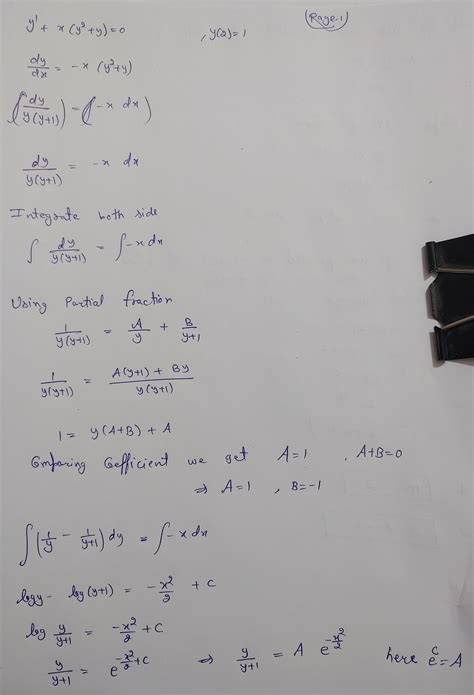 (Page-1)
y' + x (y² + y) = 0 , y(2) = 1
dy/dx = -x (y² + y)
∫ dy/y(y+1) = ∫ -x dx
dy/y(y+1) = -x dx
Integrate both side
∫ dy/y(y+1) = ∫ -x dx
Using Partial fraction
1/y(y+1) = A/y + B/y+1
1/y(y+1) = A(y+1) + By/y(y+1)
1 = y(A+B) + A
Comparing Coefficient we get A = 1 , A+B = 0
⇒ A = 1 , B = -1
∫ (1/y - 1/y+1) dy = ∫ -x dx
log y - log (y+1) = -x²/2 + C
log y/y+1 = -x²/2 + C
y/y+1 = e^(-x²/2 + C) ⇒ y/y+1 = A e^(-x²/2) here e^C = A